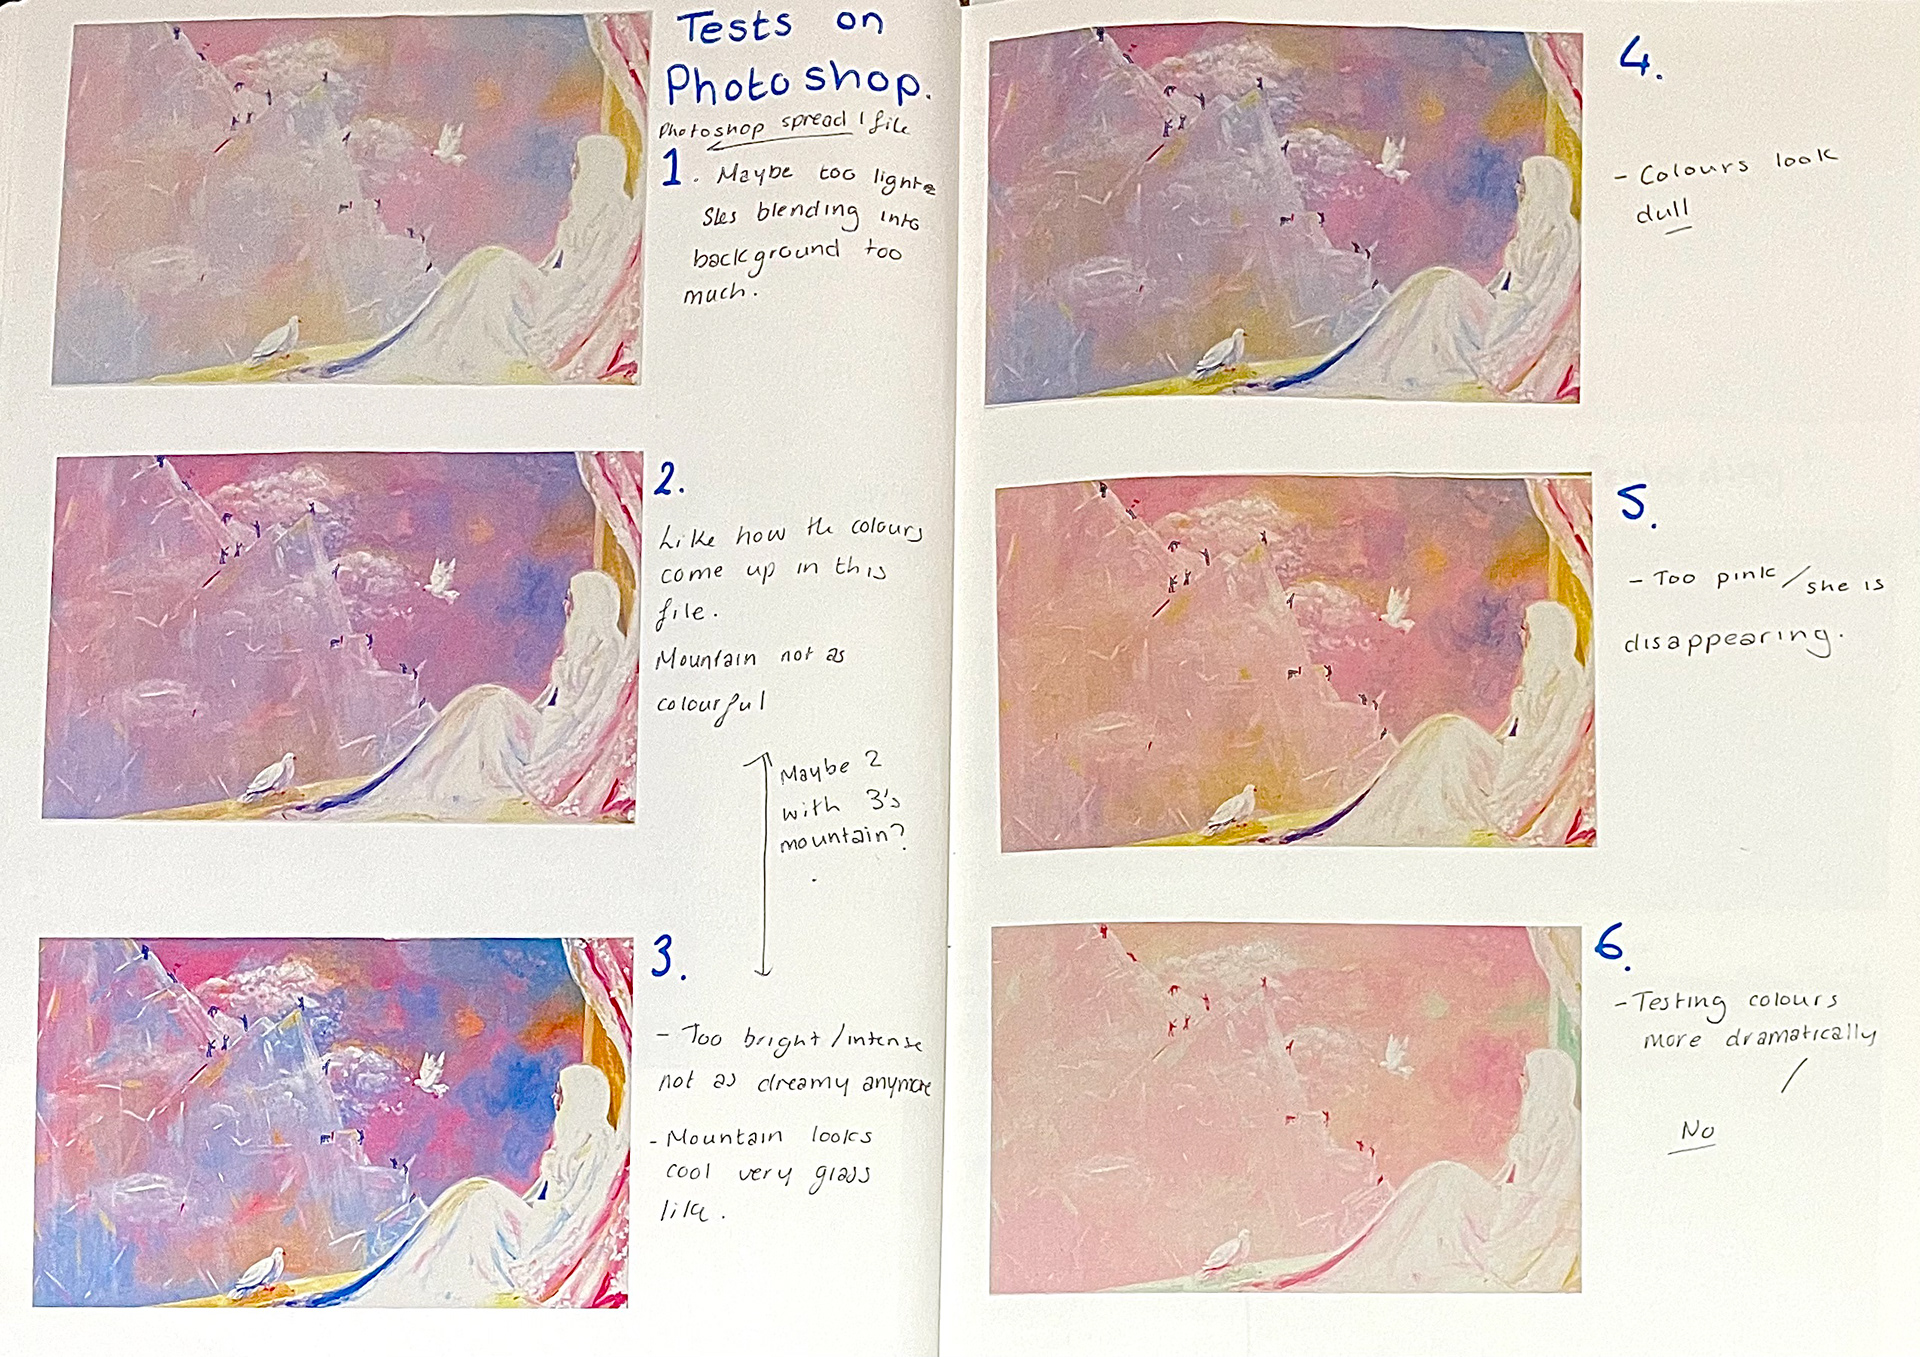 Tests on
Photoshop.
Photoshop spread 1 file
1. Maybe too light
Shes blending into
background too
much.
2.
Like how the colours
come up in this
file.
Mountain not as
colourful
Maybe 2
with 3's
mountain?
3.
- Too bright/intense
not as dreamy anymore
- Mountain looks
cool very glass
like.
4.
- Colours look
dull
5.
- Too pink / she is
disappearing.
6.
- Testing colours
more dramatically
/
No